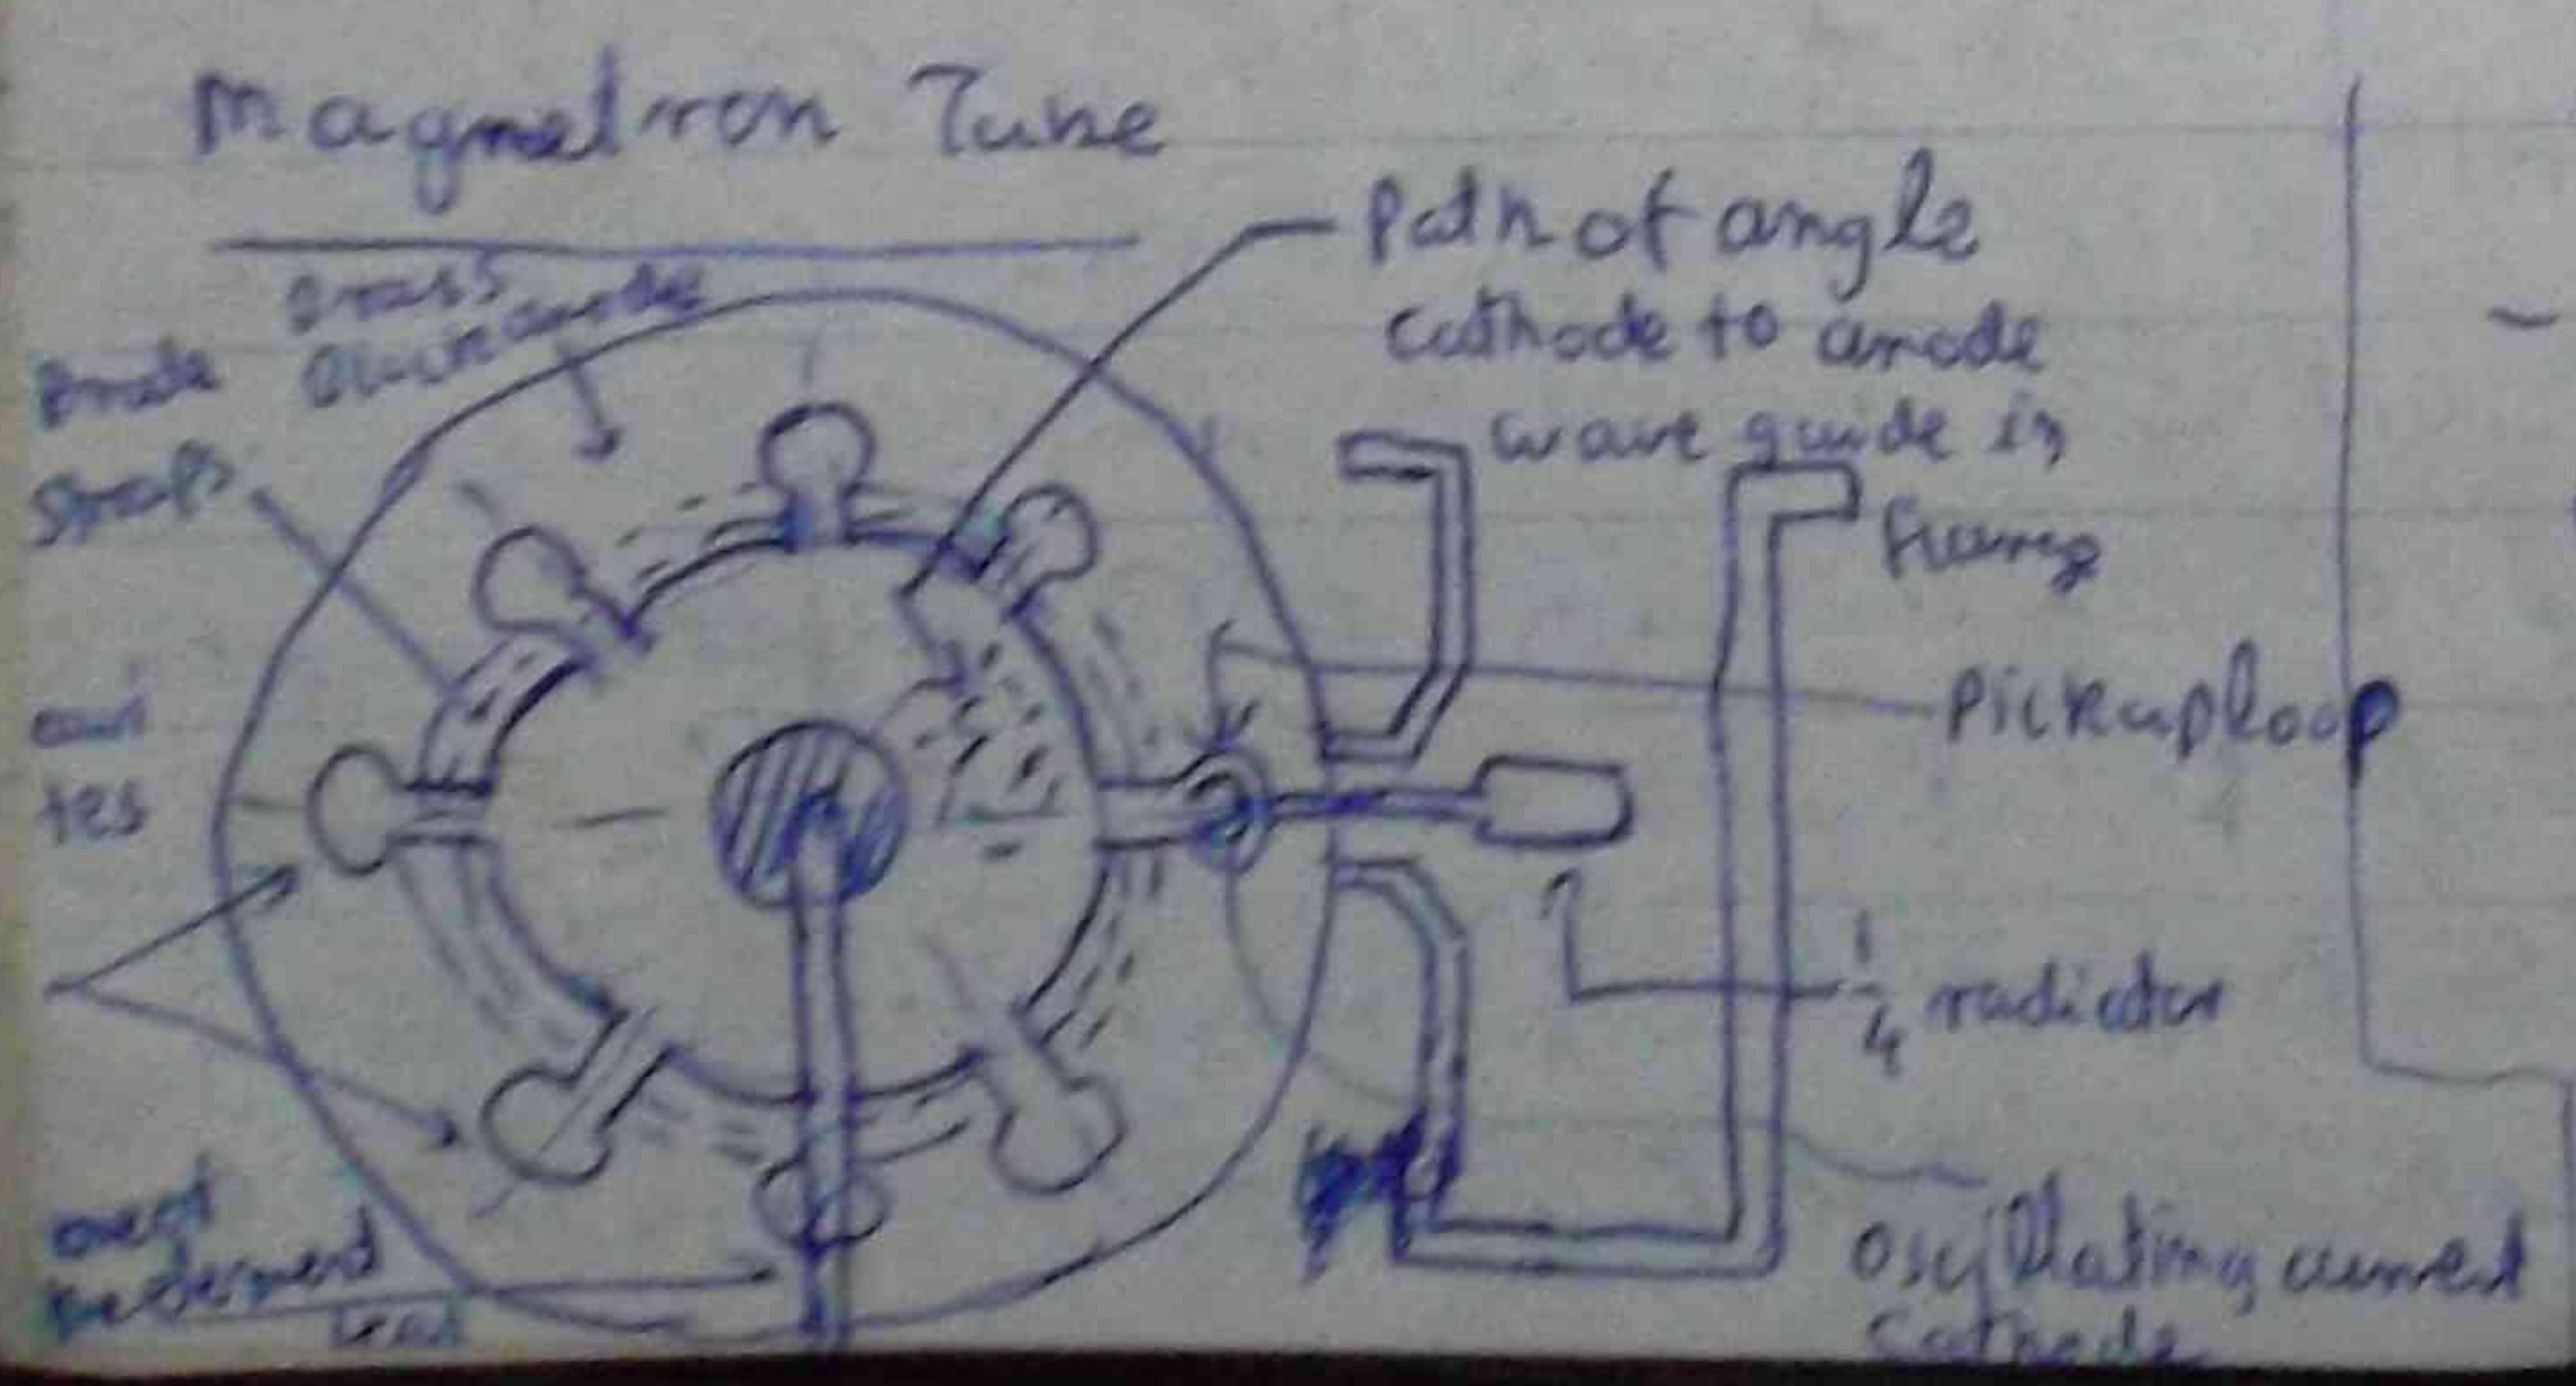 Magnetron Tube
Path of angle
Cathode to anode
wave guide in
Brass
anode
Straps
cavi
ties
Pickuploop
1/4 radiator
Oscillating current
Cathode
Lead